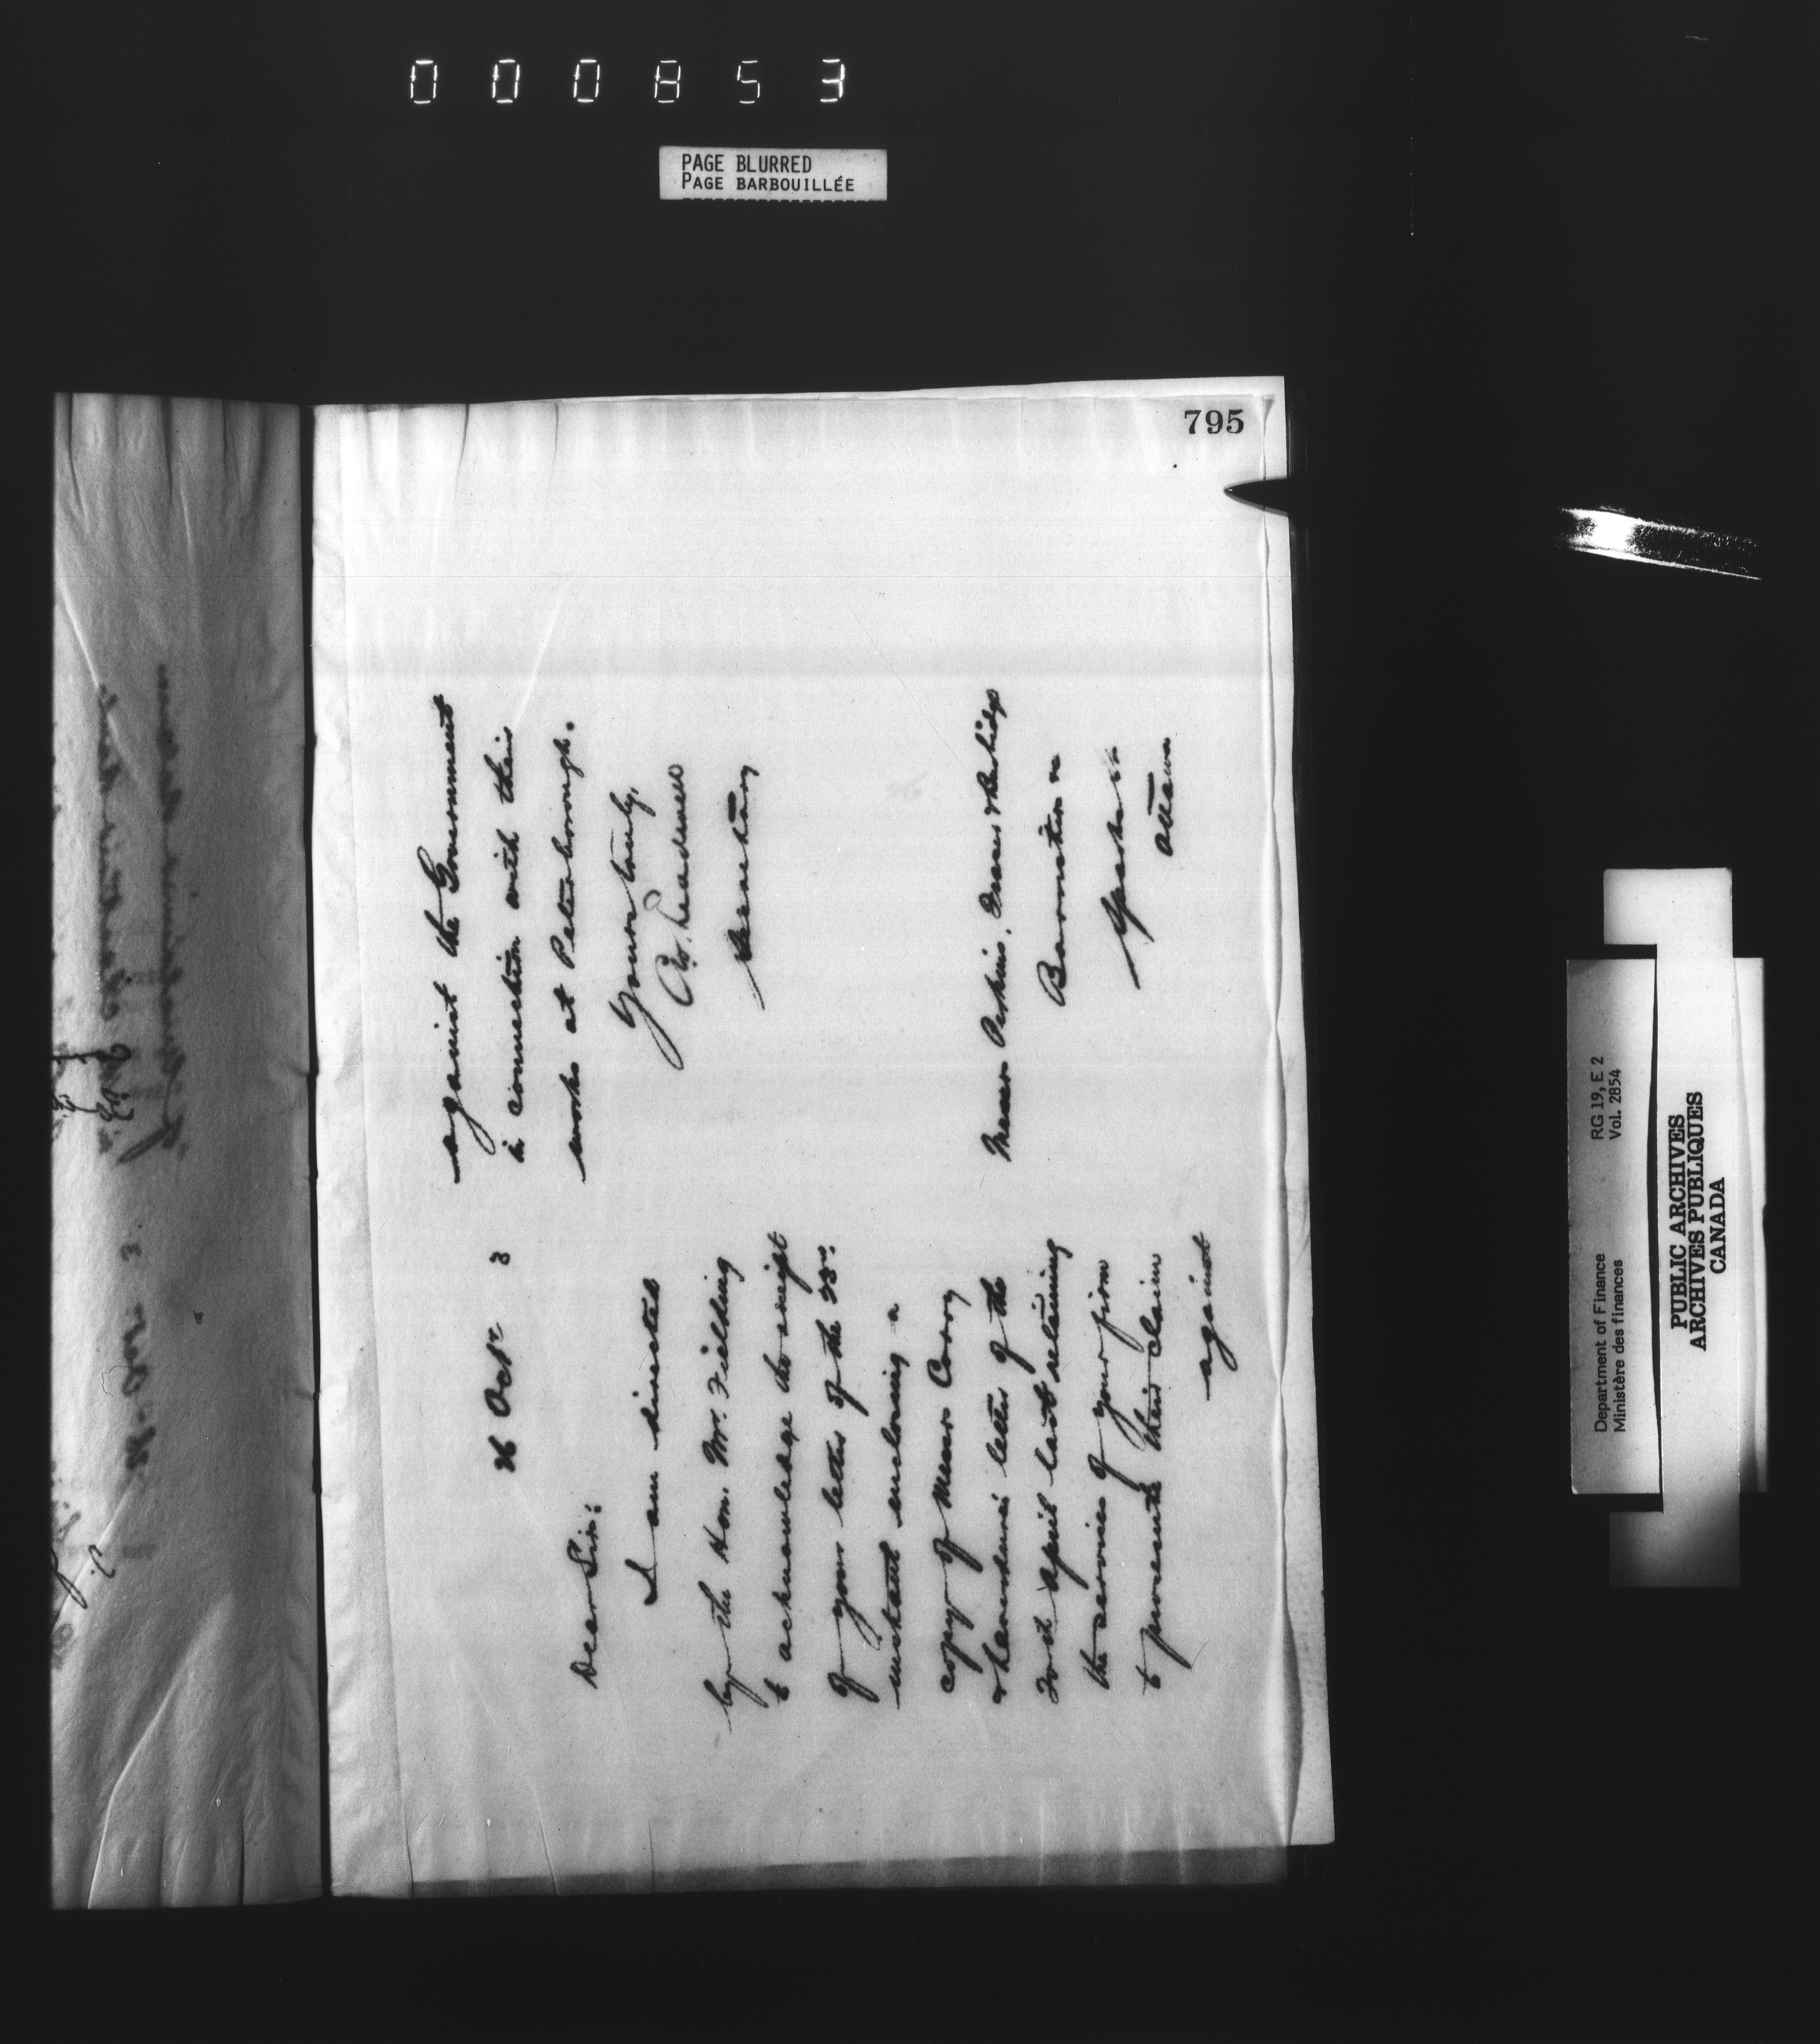 000853
PAGE BLURRED
PAGE BARBOUILLÉE
795
26 Octr 3
Dear Sir:
I am directed
by the Hon. Mr. Fielding
to acknowledge the receipt
of your letter of the 23rd
instant enclosing a
copy of Messrs Corry
& Laverdure's letter of the
April last retaining
the services of your firm
to prosecute their claim
against
against the Government
in connection with their
works at Peterborough.
Yours truly,
Secretary
Messrs Perkins, Fraser &
Barristers &c
Ottawa
Department of Finance RG 19, E 2
Ministère des finances Vol. 2854
PUBLIC ARCHIVES
ARCHIVES PUBLIQUES
CANADA